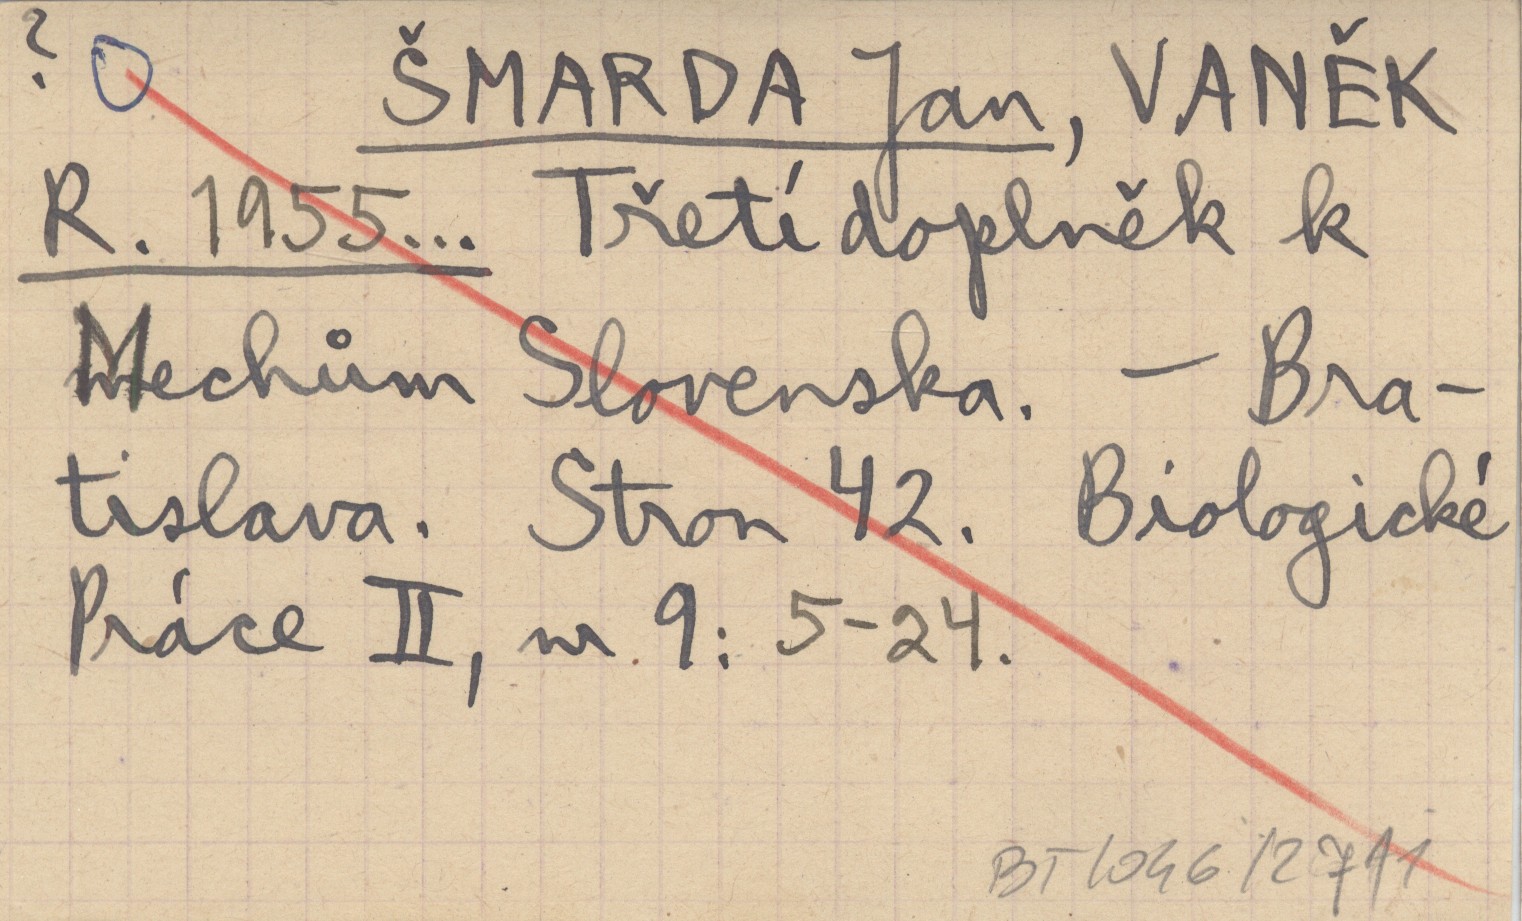 ?
ŠMARDA Jan, VANĚK
R. 1955... Třetí doplněk k
Mechům Slovenska. — Bra-
tislava. Stron 42. Biologické
Práce II, nr 9: 5-24.